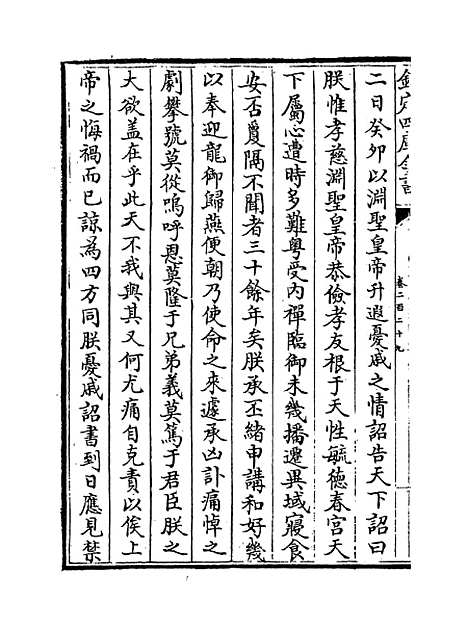 欽定四庫全書
卷二百二十九
二日癸卯以淵聖皇帝升遐憂戚之情詔告天下詔曰
朕惟孝慈淵聖皇帝恭儉孝友根于天性毓德春宮天
下屬心遭時多難粤受內禪臨御未幾播遷異域寢食
安否敻隔不聞者三十餘年矣朕承丕緒申講和好幾
以奉迎龍御歸燕便朝乃使命之來遽承凶訃痛悼之
劇攀號莫從嗚呼恩莫隆于兄弟義莫篤于君臣朕之
大欲盖在乎此天不我與其又何尤痛自克責以俟上
帝之悔禍而已諒為四方同朕憂戚詔書到日應見禁